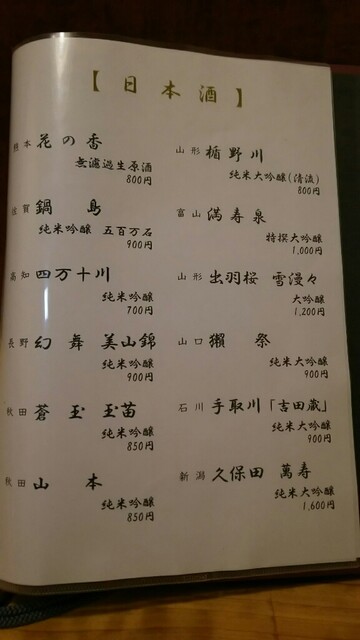 【日本酒】
熊本 花の香
無濾過生原酒
800円
佐賀 鍋島
純米吟醸 五百万石
900円
高知 四万十川
純米吟醸
700円
長野 幻舞 美山錦
純米吟醸
900円
秋田 蒼玉 玉苗
純米吟醸
850円
秋田 山本
純米吟醸
850円
山形 楯野川
純米大吟醸(清流)
800円
富山 満寿泉
特撰大吟醸
1,000円
山形 出羽桜 雪漫々
大吟醸
1,200円
山口 獺祭
純米大吟醸
900円
石川 手取川「吉田蔵」
純米大吟醸
900円
新潟 久保田 萬寿
純米大吟醸
1,600円